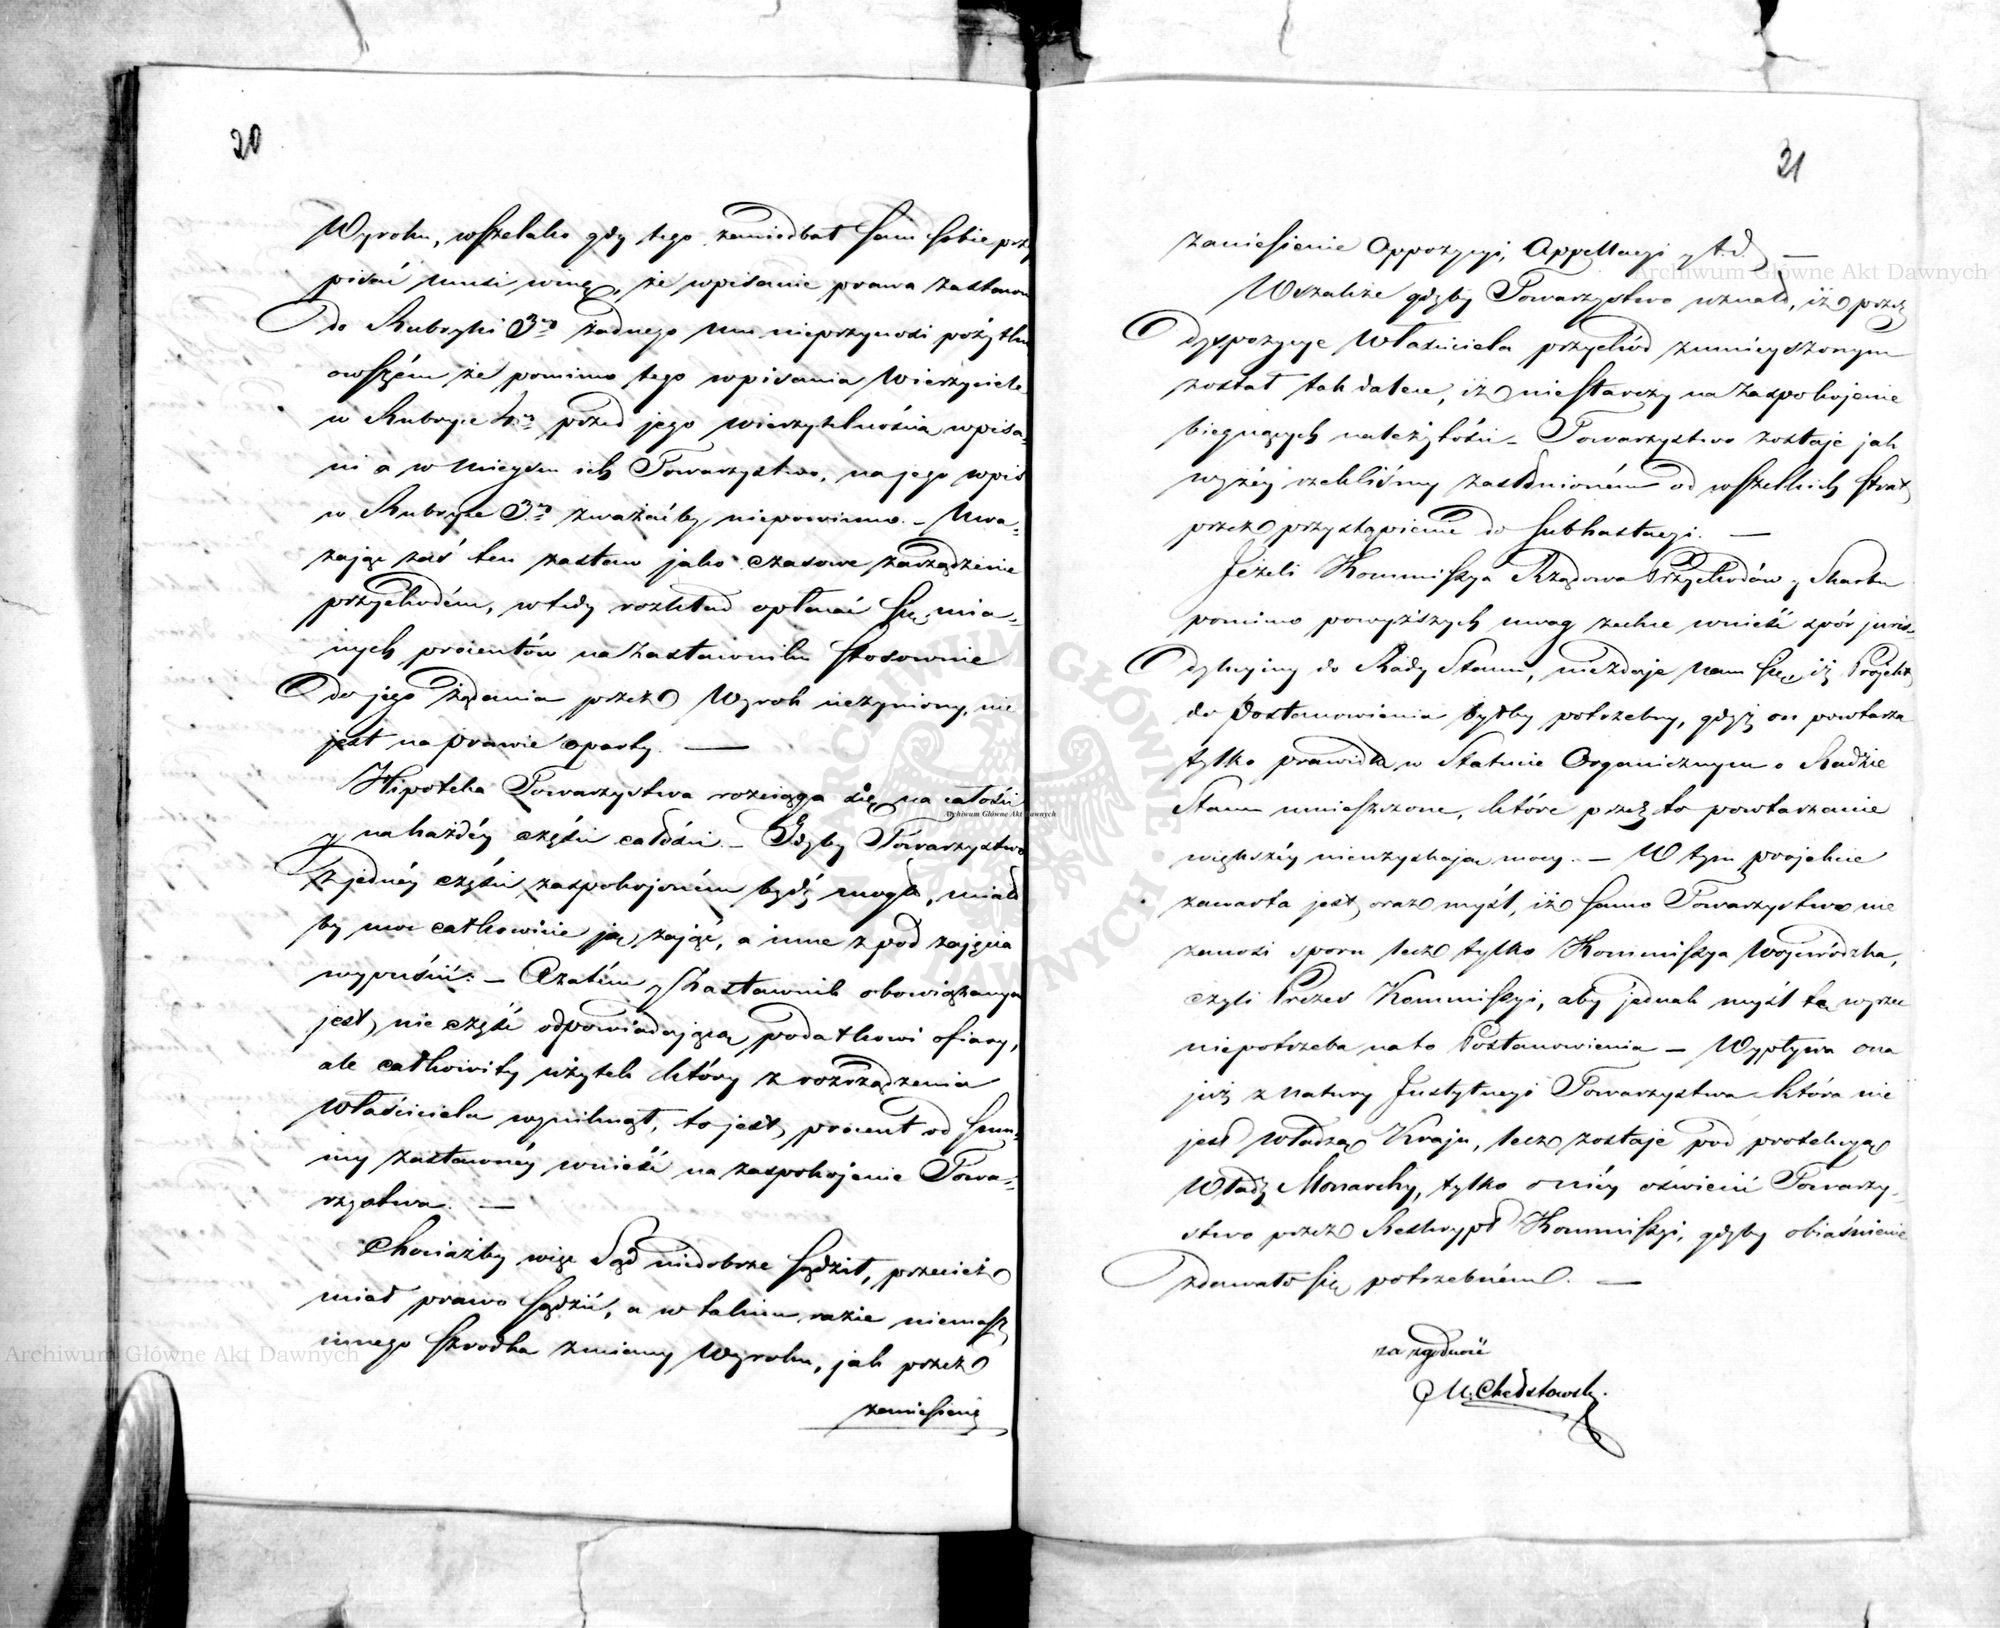 20
Wyroku, wszelako gdy tego zaniedbał sam sobie przy
pisać musi winę, że wpisanie prawa zastawu
do Rubryki 3ey żadnego mu nieprzynosi pożytku
owszem że pomimo tego wpisania Wierzyciele
w Rubryce 4ey przed jego wierzytelnością wpisa-
ni a w mieyscu ich Towarzystwo, na jego wpis
w Rubryce 3ey zważaćby niepowinno. – Uwa-
żając zaś ten zastaw jako czasowe zarządzenie
przychodem, wtedy rozkład opłacać się mia-
nych procentów na zastawnika stosownie
do jego żądania przez Wyrok uczyniony, nie
jest na prawie oparty. —
Hipoteka Towarzystwa rozciąga się na całości
y na każdéy części całości. – Gdyby Towarzystwo
z jednéy części zaspokojoném bydź mogło, miało
by moc całkowicie ją zająć, a inne z pod zajęcia
wypuścić. – Azatém y Zastawnik obowiązanym
jest, nie część odpowiadającą podatkowi ofiary,
ale całkowity użytek który z rozrządzenia
właściciela wyniknął, to jest, procent od sum-
my zastawnéy wnieść na zaspokojenie Towa-
rzystwa. —
Chociażby więc Sąd niedobrze sądził, przecież
miał prawo sądzić, a w takim razie niemasz
innego środka zmiany Wyroku, jak przez
zaniesienie
21
zaniesienie Oppozycyi, Appellacyi y t.d. —
Wszakże gdyby Towarzystwo uznało, iż przez
dyspozycye Właściciela przychód zmnieyszonym
został tak dalece, iż niestarczy na zaspokojenie
biegnących należytości – Towarzystwo zostaje jak
wyżéy rzekliśmy zasłonioném od wszelkich strat
przez przystąpienie do subhastacyi. —
Jeżeli Kommissya Rządowa Przychodów y Skarbu
pomimo powyższych uwag zechce wnieść spór juris-
dykcyiny do Rady Stanu, niezdaje nam się iż Projekt
do Postanowienia byłby potrzebny, gdyż on powtarza
tylko prawidła w Statucie Organicznym o Radzie
Stanu umieszczone, które przez to powtarzanie
większéy nieuzyskają mocy. – W tym projekcie
zawarta jest oraz myśl, iż samo Towarzystwo nie
zanosi sporu lecz tylko Kommissya Woiewódzka,
czyli Prezes Kommissyi, aby jednak myśl tę wyrzec
niepotrzeba na to Postanowienia – Wypływa ona
już z natury Instytucyi Towarzystwa która nie
jest władzą Kraju, lecz zostaje pod protekcyą
Władz Monarchy, tylko o niéy oświecić Towarzy-
stwo przez Reskrypt Kommissyi, gdyby obiaśnienie
zdawało się potrzebném. —
za zgodność
M. Chełstowski.
Archiwum Główne Akt Dawnych
Archiwum Główne Akt Dawnych
Archiwum Główne Akt Dawnych
ARCHIWUM GŁÓWNE AKT DAWNYCH